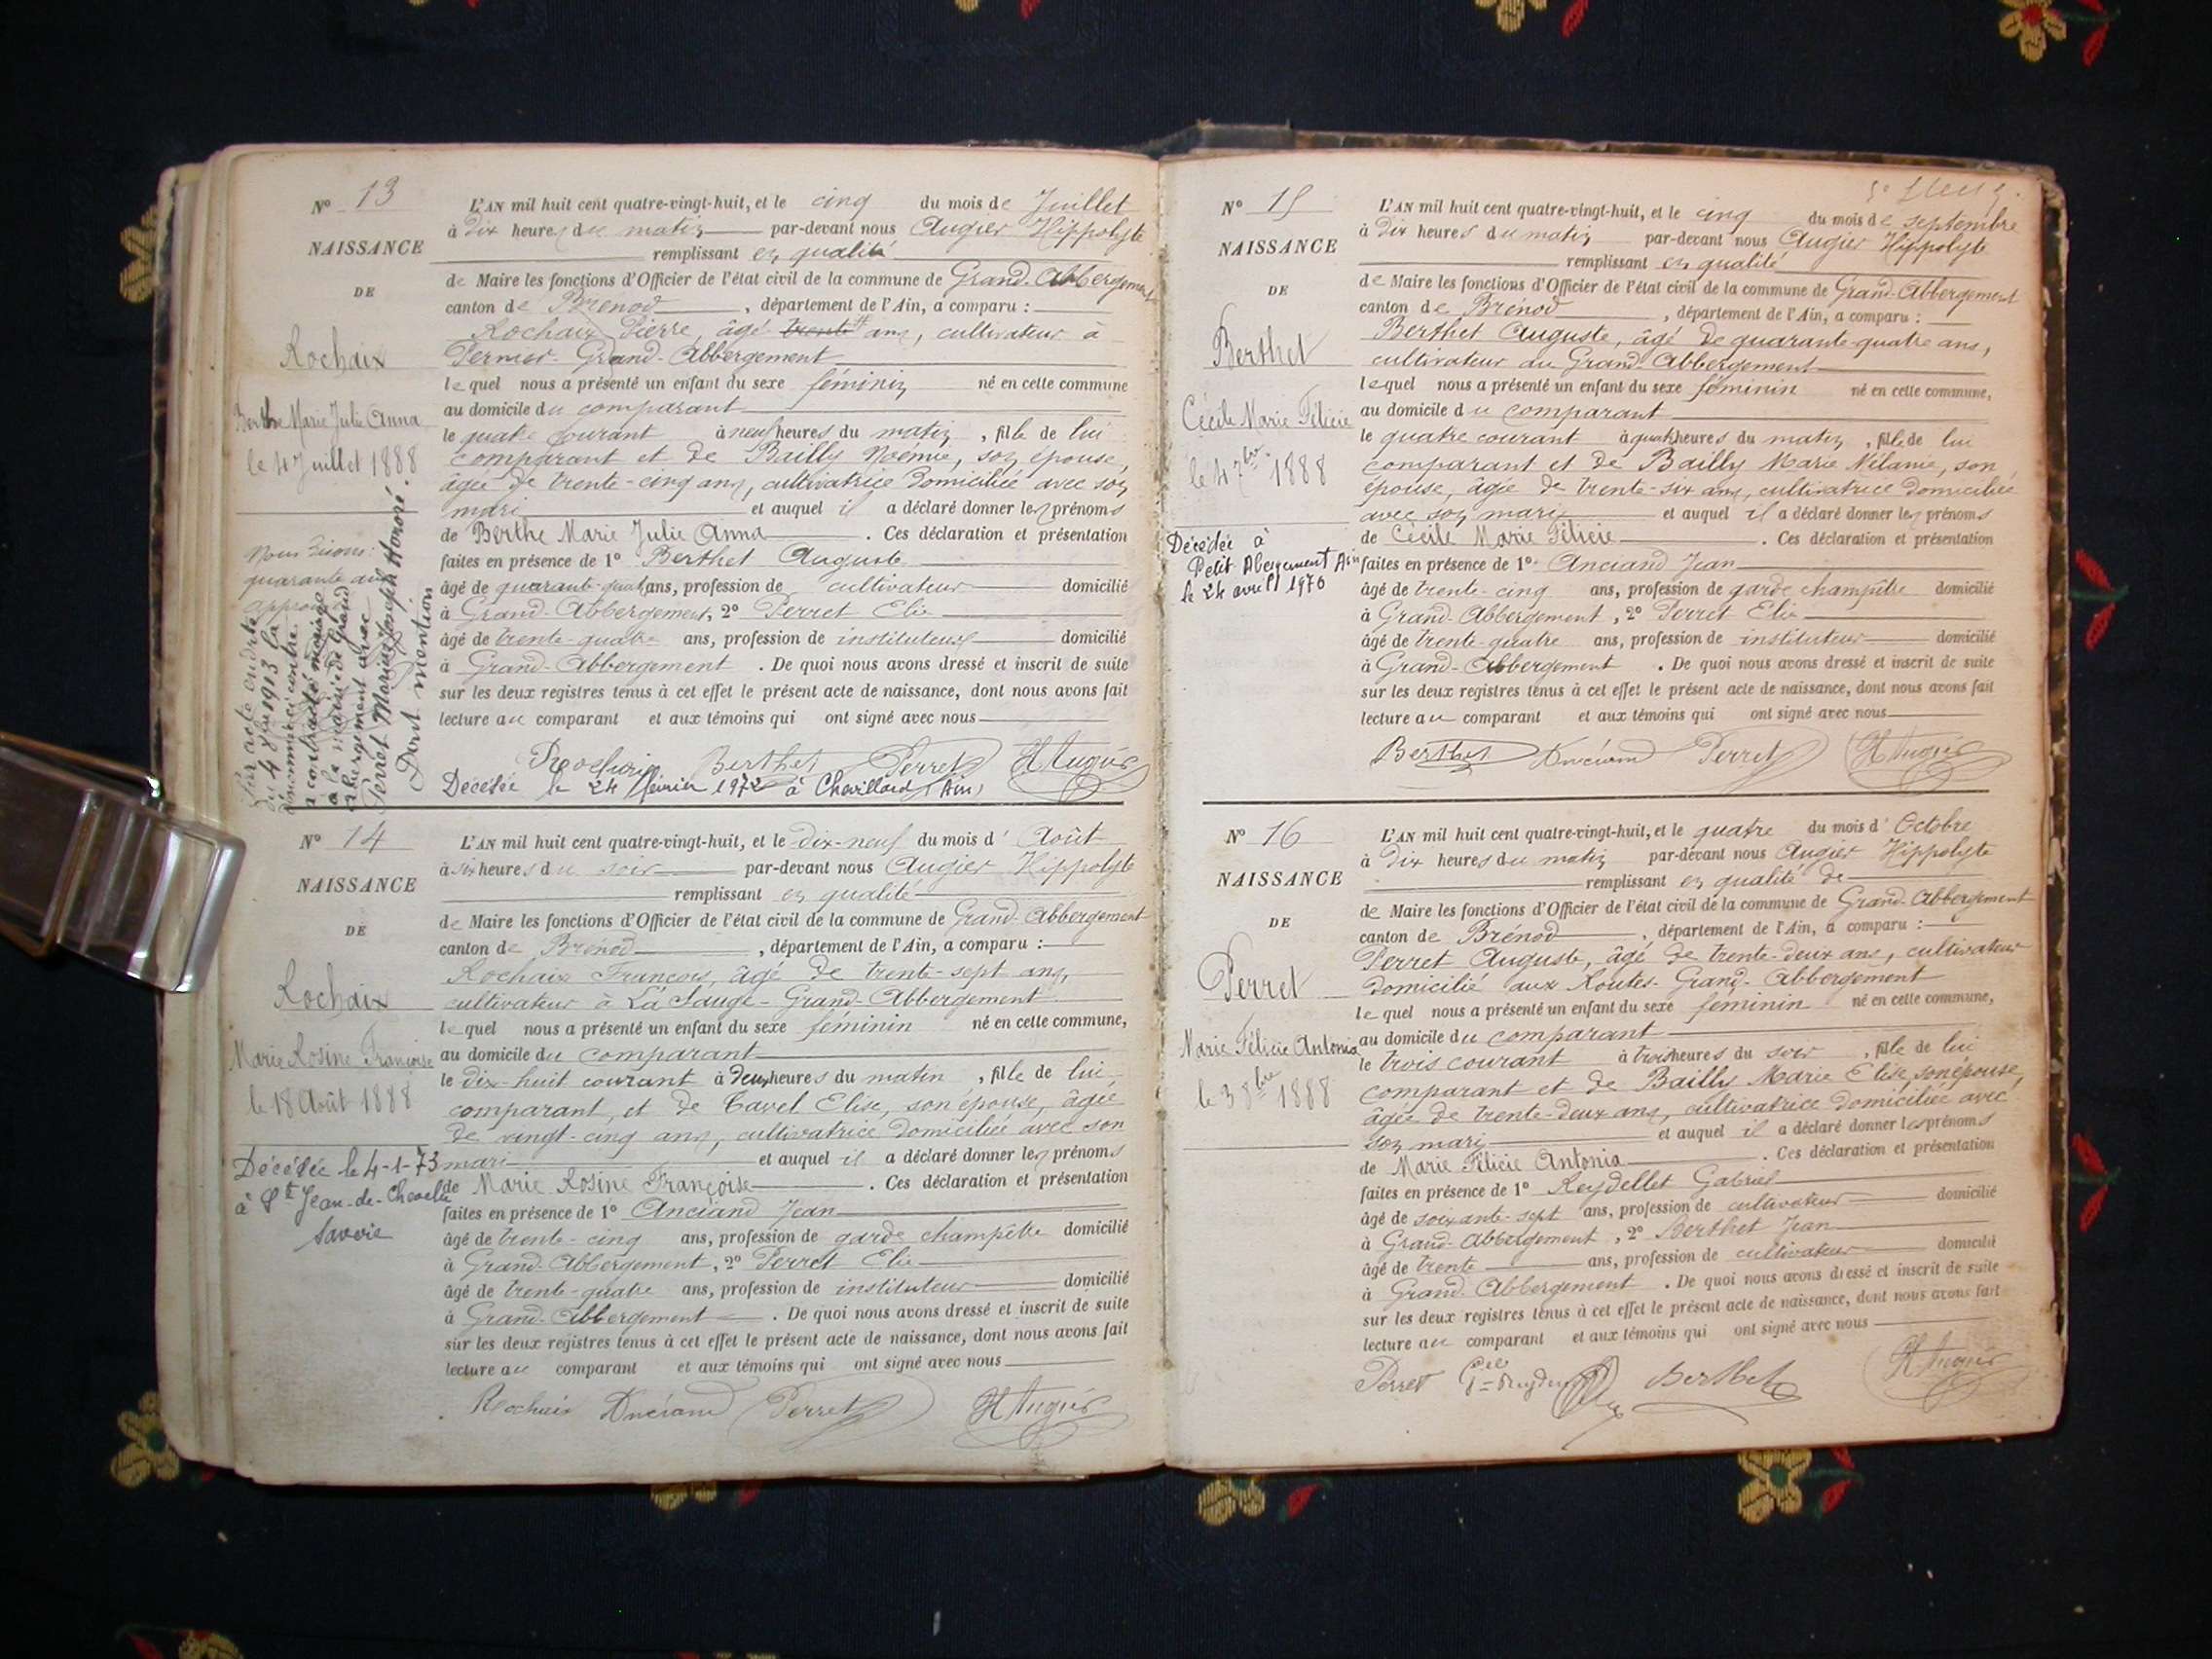 N° 13
NAISSANCE
DE
Rochaix
Berthe Marie Julie Anna
le 4 Juillet 1888
Nous disons:
quarante ans
L'AN mil huit cent quatre-vingt-huit, et le cinq du mois de Juillet
à dix heures du matin par-devant nous Augier Hippolyte
remplissant en qualité
de Maire les fonctions d'Officier de l'état civil de la commune de Grand-Abbergement
canton de Brénod, département de l'Ain, a comparu :
Rochaix Pierre, âgé trente # ans, cultivateur à
Grand-Abbergement
lequel nous a présenté un enfant du sexe féminin né en cette commune
au domicile du comparant
le quatre courant à neuf heures du matin, fille de lui
comparant et de Bailly Noémie, son épouse,
âgée de trente-cinq ans, cultivatrice domiciliée avec son
mari et auquel il a déclaré donner les prénoms
de Berthe Marie Julie Anna. Ces déclaration et présentation
faites en présence de 1° Berthet Auguste
âgé de quarante-quatre ans, profession de cultivateur domicilié
à Grand-Abbergement, 2° Perret Elie
âgé de trente-quatre ans, profession de instituteur domicilié
à Grand-Abbergement. De quoi nous avons dressé et inscrit de suite
sur les deux registres tenus à cet effet le présent acte de naissance, dont nous avons fait
lecture au comparant et aux témoins qui ont signé avec nous
Rochaix Berthet Perret H Augier
Décédée le 24 février 1972 à Chevillard (Ain)
du 4 juin 1913 la
dénommée ci-contre
a contracté mariage
à la mairie de Grand
Abergement avec
Perret Marius Joseph Honoré.
Dont mention
N° 14
NAISSANCE
DE
Rochaix
Marie Rosine Françoise
le 18 Août 1888
Décédée le 4-1-73
à St Jean-de-Chevelu
Savoie
L'AN mil huit cent quatre-vingt-huit, et le dix-neuf du mois d' Août
à six heures du soir par-devant nous Augier Hippolyte
remplissant en qualité
de Maire les fonctions d'Officier de l'état civil de la commune de Grand-Abbergement
canton de Brénod, département de l'Ain, a comparu :
Rochaix François, âgé de trente-sept ans,
cultivateur à La Sauge-Grand-Abbergement
lequel nous a présenté un enfant du sexe féminin né en cette commune,
au domicile du comparant
le dix-huit courant à deux heures du matin, fille de lui
comparant, et de Cavel Elise, son épouse, âgée
de vingt-cinq ans, cultivatrice domiciliée avec son
mari et auquel il a déclaré donner les prénoms
de Marie Rosine Françoise. Ces déclaration et présentation
faites en présence de 1° Anciand Jean
âgé de trente-cinq ans, profession de garde champêtre domicilié
à Grand-Abbergement, 2° Perret Elie
âgé de trente-quatre ans, profession de instituteur domicilié
à Grand-Abbergement. De quoi nous avons dressé et inscrit de suite
sur les deux registres tenus à cet effet le présent acte de naissance, dont nous avons fait
lecture au comparant et aux témoins qui ont signé avec nous
Rochaix Anciand Perret H Augier
N° 15
NAISSANCE
DE
Berthet
Cécile Marie Félicie
le 4 7bre 1888
Décédée à
Petit Abergement Ain
le 24 avril 1970
L'AN mil huit cent quatre-vingt-huit, et le cinq du mois de septembre
à dix heures du matin par-devant nous Augier Hippolyte
remplissant en qualité
de Maire les fonctions d'Officier de l'état civil de la commune de Grand-Abbergement
canton de Brénod, département de l'Ain, a comparu :
Berthet Auguste, âgé de quarante-quatre ans,
cultivateur au Grand-Abbergement
lequel nous a présenté un enfant du sexe féminin né en cette commune,
au domicile du comparant
le quatre courant à quatre heures du matin, fille de lui
comparant et de Bailly Marie Mélanie, son
épouse, âgée de trente-six ans, cultivatrice domiciliée
avec son mari et auquel il a déclaré donner les prénoms
de Cécile Marie Félicie. Ces déclaration et présentation
faites en présence de 1° Anciand Jean
âgé de trente-cinq ans, profession de garde champêtre domicilié
à Grand-Abbergement, 2° Perret Elie
âgé de trente-quatre ans, profession de instituteur domicilié
à Grand-Abbergement. De quoi nous avons dressé et inscrit de suite
sur les deux registres tenus à cet effet le présent acte de naissance, dont nous avons fait
lecture au comparant et aux témoins qui ont signé avec nous
Berthet Anciand Perret H Augier
N° 16
NAISSANCE
DE
Perret
Marie Félicie Antonia
le 3 8bre 1888
L'AN mil huit cent quatre-vingt-huit, et le quatre du mois d' Octobre
à dix heures du matin par-devant nous Augier Hippolyte
remplissant en qualité de
de Maire les fonctions d'Officier de l'état civil de la commune de Grand-Abbergement
canton de Brénod, département de l'Ain, a comparu :
Perret Auguste, âgé de trente-deux ans, cultivateur
domicilié aux Routes-Grand-Abbergement
lequel nous a présenté un enfant du sexe féminin né en cette commune,
au domicile du comparant
le trois courant à trois heures du soir, fille de lui
comparant et de Bailly Marie Elise, son épouse,
âgée de trente-deux ans, cultivatrice domiciliée avec
son mari et auquel il a déclaré donner les prénoms
de Marie Félicie Antonia. Ces déclaration et présentation
faites en présence de 1° Reydellet Gabriel
âgé de soixante-sept ans, profession de cultivateur domicilié
à Grand-Abbergement, 2° Berthet Jean
âgé de trente ans, profession de cultivateur domicilié
à Grand-Abbergement. De quoi nous avons dressé et inscrit de suite
sur les deux registres tenus à cet effet le présent acte de naissance, dont nous avons fait
lecture au comparant et aux témoins qui ont signé avec nous
Perret Berthet H Augier